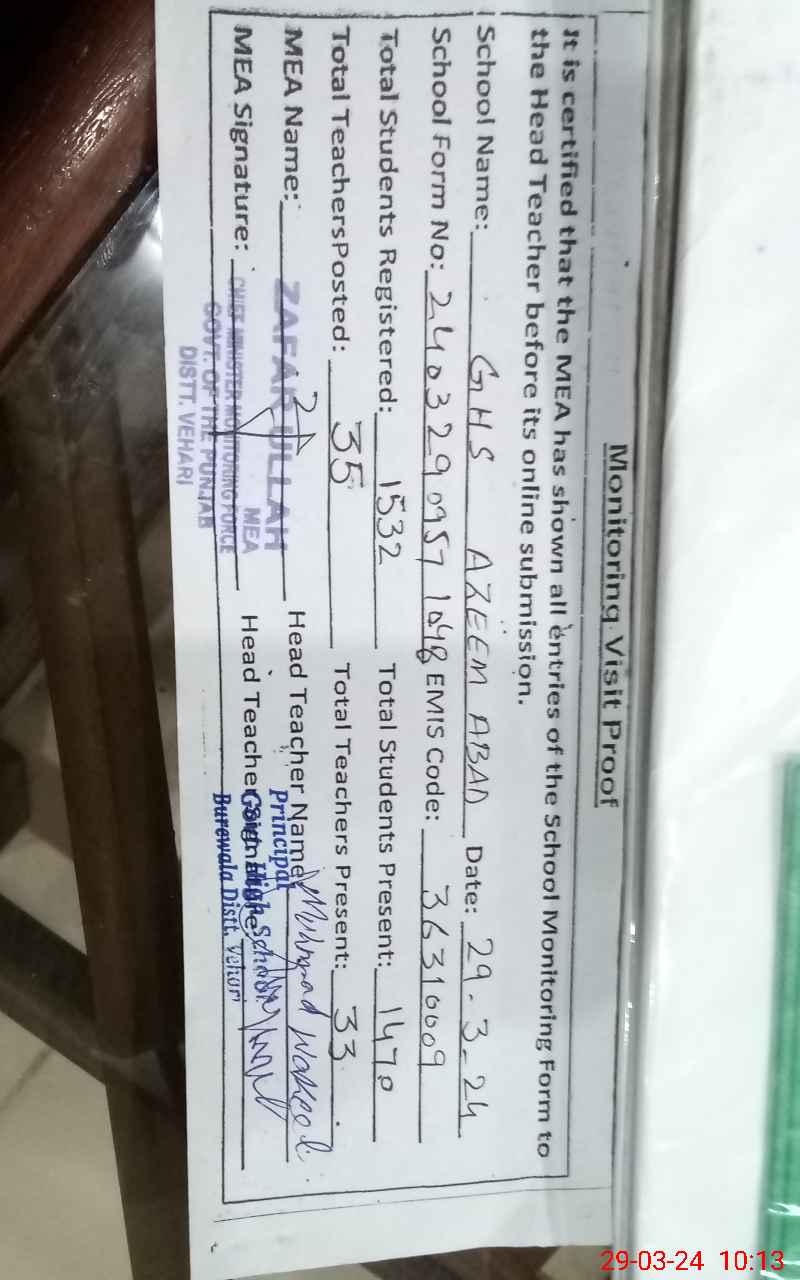 Monitoring Visit Proof
It is certified that the MEA has shown all entries of the School Monitoring Form to
the Head Teacher before its online submission.
School Name: GHS AZEEM ABAD Date: 29-3-24
School Form No: 2403290957 1048 EMIS Code: 36310009
Total Students Registered: 1532 Total Students Present: 1470
Total TeachersPosted: 35 Total Teachers Present: 33
MEA Name: ZAFAR ULLAH Head Teacher Name: Muhmmad Waheed
MEA
Principal
MEA Signature: Head Teacher Signature:
CHIEF MINISTER MONITORING FORCE
Govt. High School
GOVT. OF THE PUNJAB
Burewala Distt. Vehari
DISTT. VEHARI
29-03-24 10:13